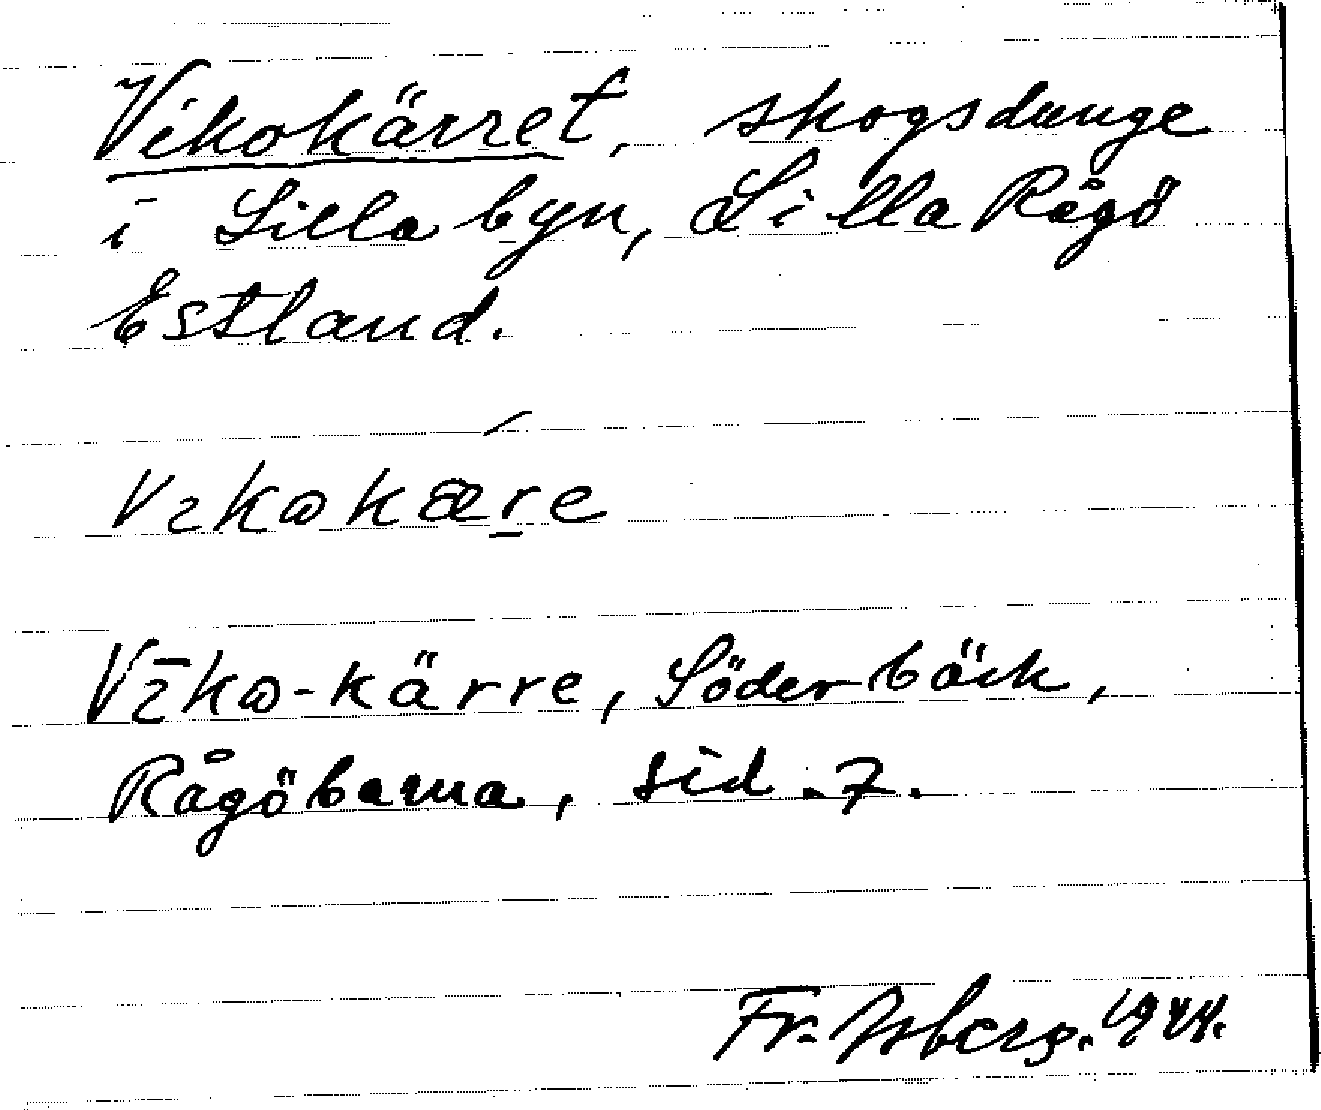 Vikokärret, skogsdunge
i Lilla byn, Lilla Rågö
Estland.
Vıkωkære
Vīkω-kärre, Söderbäck,
Rågöbarna, sid. 7.
Fr. Isberg. 1944.